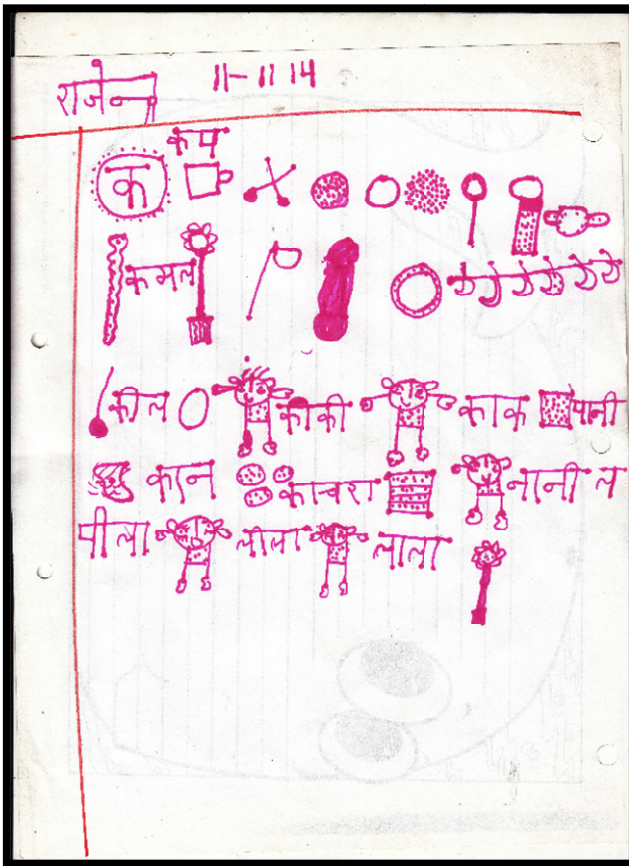 राजेन्द्र 11-11 14
कप
क
कमल
कील कीकी काक पानी
कान काचरा नानी ल
पीला लीला लाला